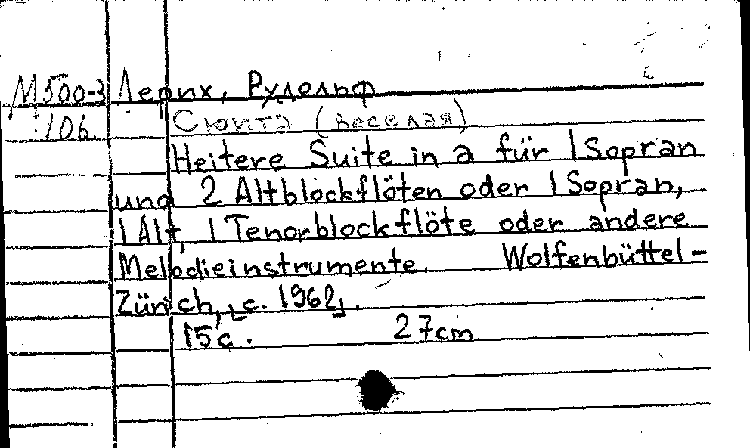 М500-3 Лерих, Рудольф
106 Сюита (веселая)
Heitere Suite in a für 1 Sopran
und 2 Altblockflöten oder 1 Sopran,
1 Alt, 1 Tenorblockflöte oder andere
Melodieinstrumente. Wolfenbüttel-
Zürich, [c. 1962].
15 c. 27cm